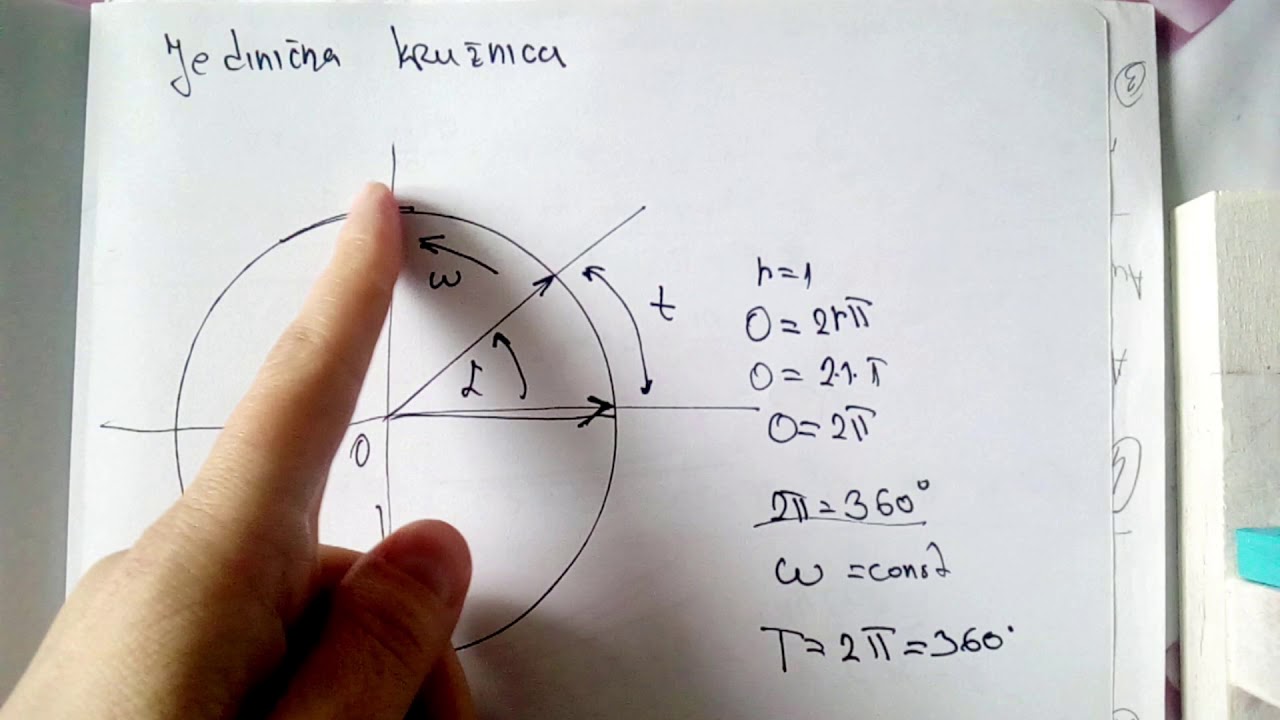 Jedinična kružnica
ω
t
α
O
r=1
O=2rπ
O=2·1·π
O=2π
2π=360°
ω=const
T=2π=360°